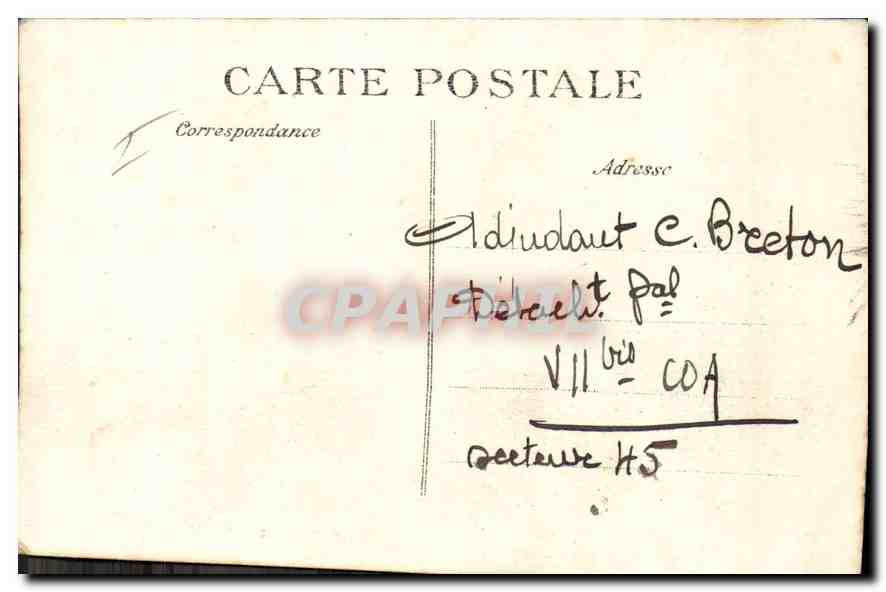 CARTE POSTALE
Correspondance
Adresse
Adjudant C. Breton
Détacht. pal
VII bis COA
secteur 45
CPAPHIL